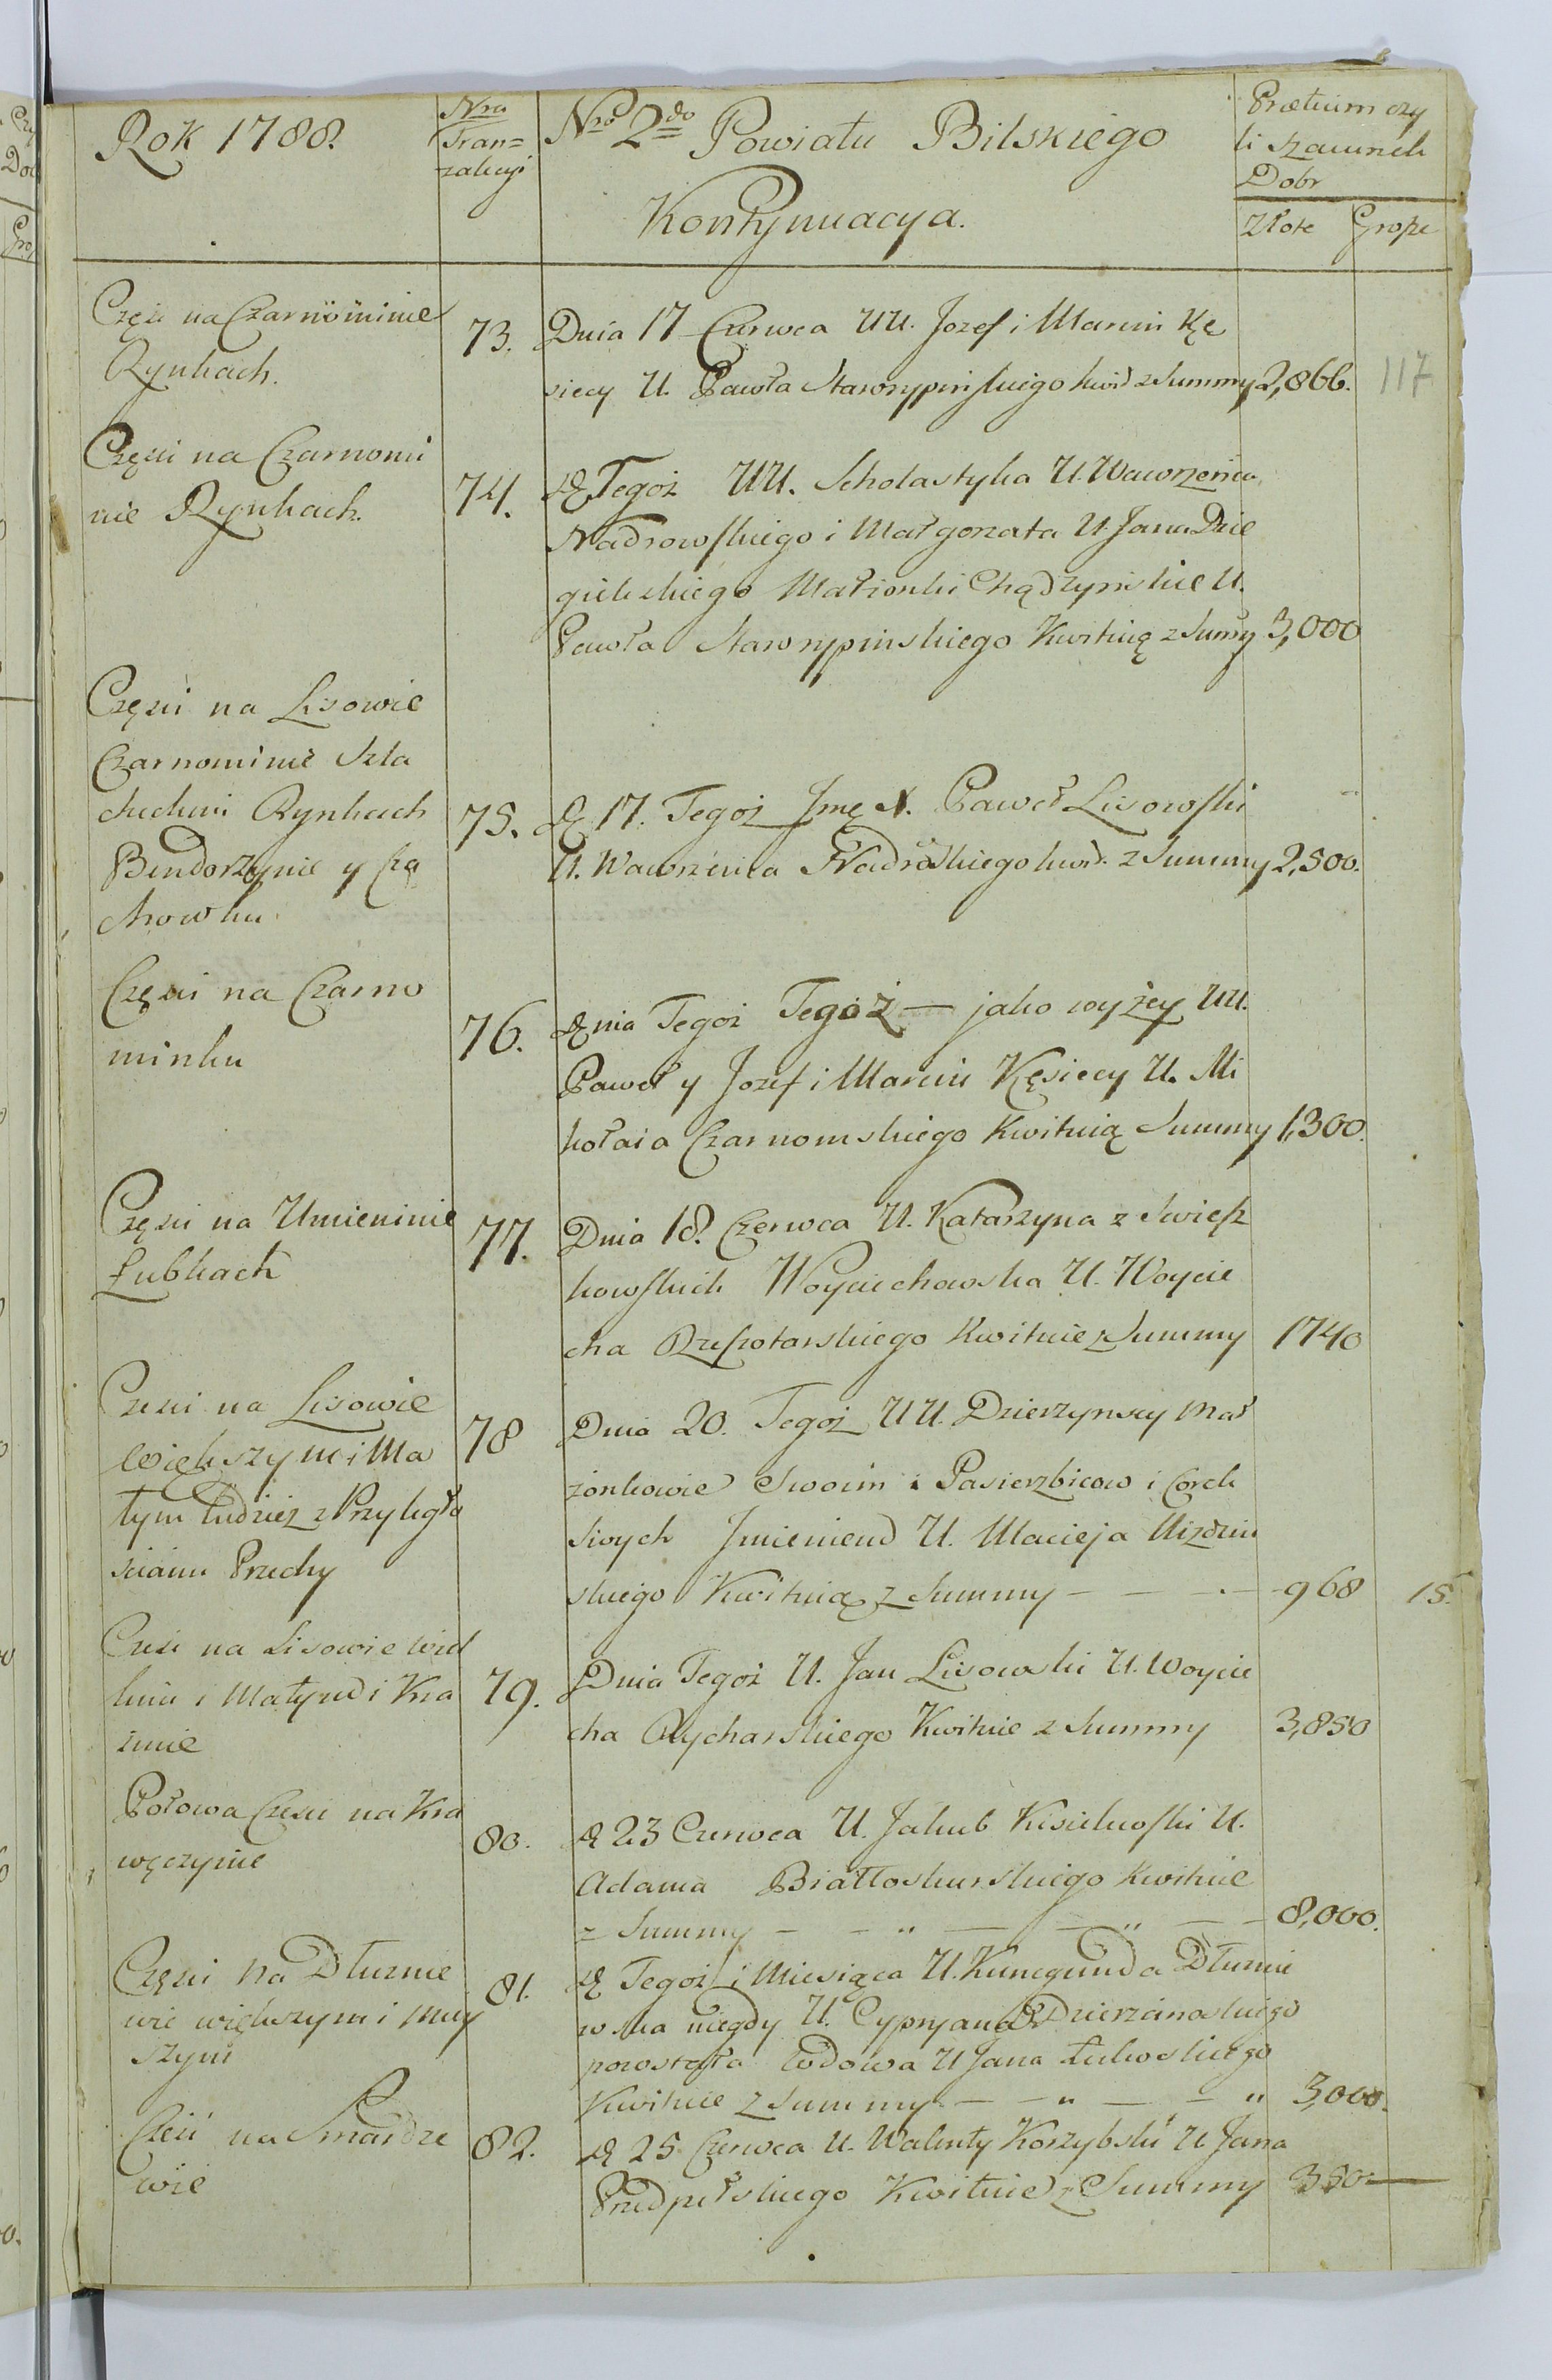 Rok 1788.
Nra
Tran=
zakcyi
Nro 2do Powiatu Bilskiego
Kontynuacya.
Prætium czy
li szacunek
Dobr
Złote Grosze
117
Częsci na Czarnominie
Rynkach.
73. Dnia 17 Czerwca UU. Jozef i Marcin Kę
siccy U. Pawła Starorypinskiego kwit z Summy 2,866.
Częsci na Czarnomi
nie Rynkach.
74. D Tegoż UU. Scholastyka U. Wawrzeńca
Nadrowskiego i Małgorzata U. Jana Dzie
gielskiego Małżonki Chądzynskie U.
Pawła Starorypinskiego Kwituią z Sumy 3,000
Częsci na Lisowie
Czarnominie Szla
checkim Rynkach
Bendorzynie y Czą
chowku
75. D 17. Tegoż Jmę X. Paweł Lisowski
U. Wawrzenca Nadroskiego kwit z Summy 2,500.
Częsci na Czarno
minku
76. Dnia Tegoż Tegoż — jako wyżey UU.
Paweł y Jozef i Marcin Kęsiccy U. Mi
kołaia Czarnomskiego Kwituią Summy 1,300.
Częsci na Umieninie
Łubkach
77. Dnia 18. Czerwca U. Katarzyna z Swiesz
kowskich Woyciechowska U. Woycie
cha Rzeszotarskiego Kwituie z Summy 1740
Czesci na Lisowie
większym i Ma
łym tudzież z Przyległo
sciami Przechy
78 Dnia 20. Tegoż UU. Dzierzynscy Mał
żonkowie Swoim i Pasierzbicow i Corek
swych Jmieniem U. Macieja
skiego Kwituią z Summy — — — 968 15.
Czesc na Lisowie Wiel
kim i Małym i Kra
imie
79. Dnia Tegoż U. Jan Lisowski U. Woycie
cha Rycharskiego Kwituie z Summy 3,850
Połowa Czesci na Kra
węczynie
80. D 23 Czerwca U. Jakub Kisielewski U.
Adama Białłoskurskiego Kwituie
z Summy — — „ — — „ — — 8,000.
Częsci na Dłuznie
wie większym i mny
szym
81. D Tegoż i Miesiąca U. Kunegunda Dłuznie
wska niegdy U. Cypryana Dzierzanoskiego
pozostała Wdowa U Jana Łukoskiego
Kwituie z Summy — — „ — — „ 3,000.
Czesć na Smardze
wie
82. D 25 Czerwca U. Walenty Korzybski U Jana
Przedpełskiego Kwituie z Summy 350 —